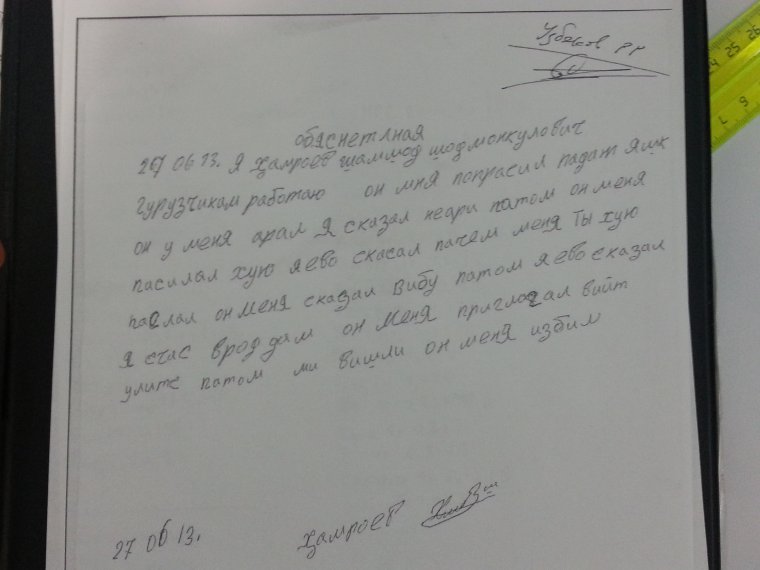 Узбеков РР
обяснетлная
267 06 13. Я Ҳамроев шаммод шодмонкулович
гурузчикам работаю он мня попрасил падат яшк
он у меня арал Я сказал неари патом он меня
пасилал хую я ево скасал пачем меня Ты хую
паслал он меня сказал Вибу патом я ево сказал
Я счас врод дам он меня пригласал вийт
улите патом ми вишли он меня избил
27 06 13. Ҳамроев
24 25 26